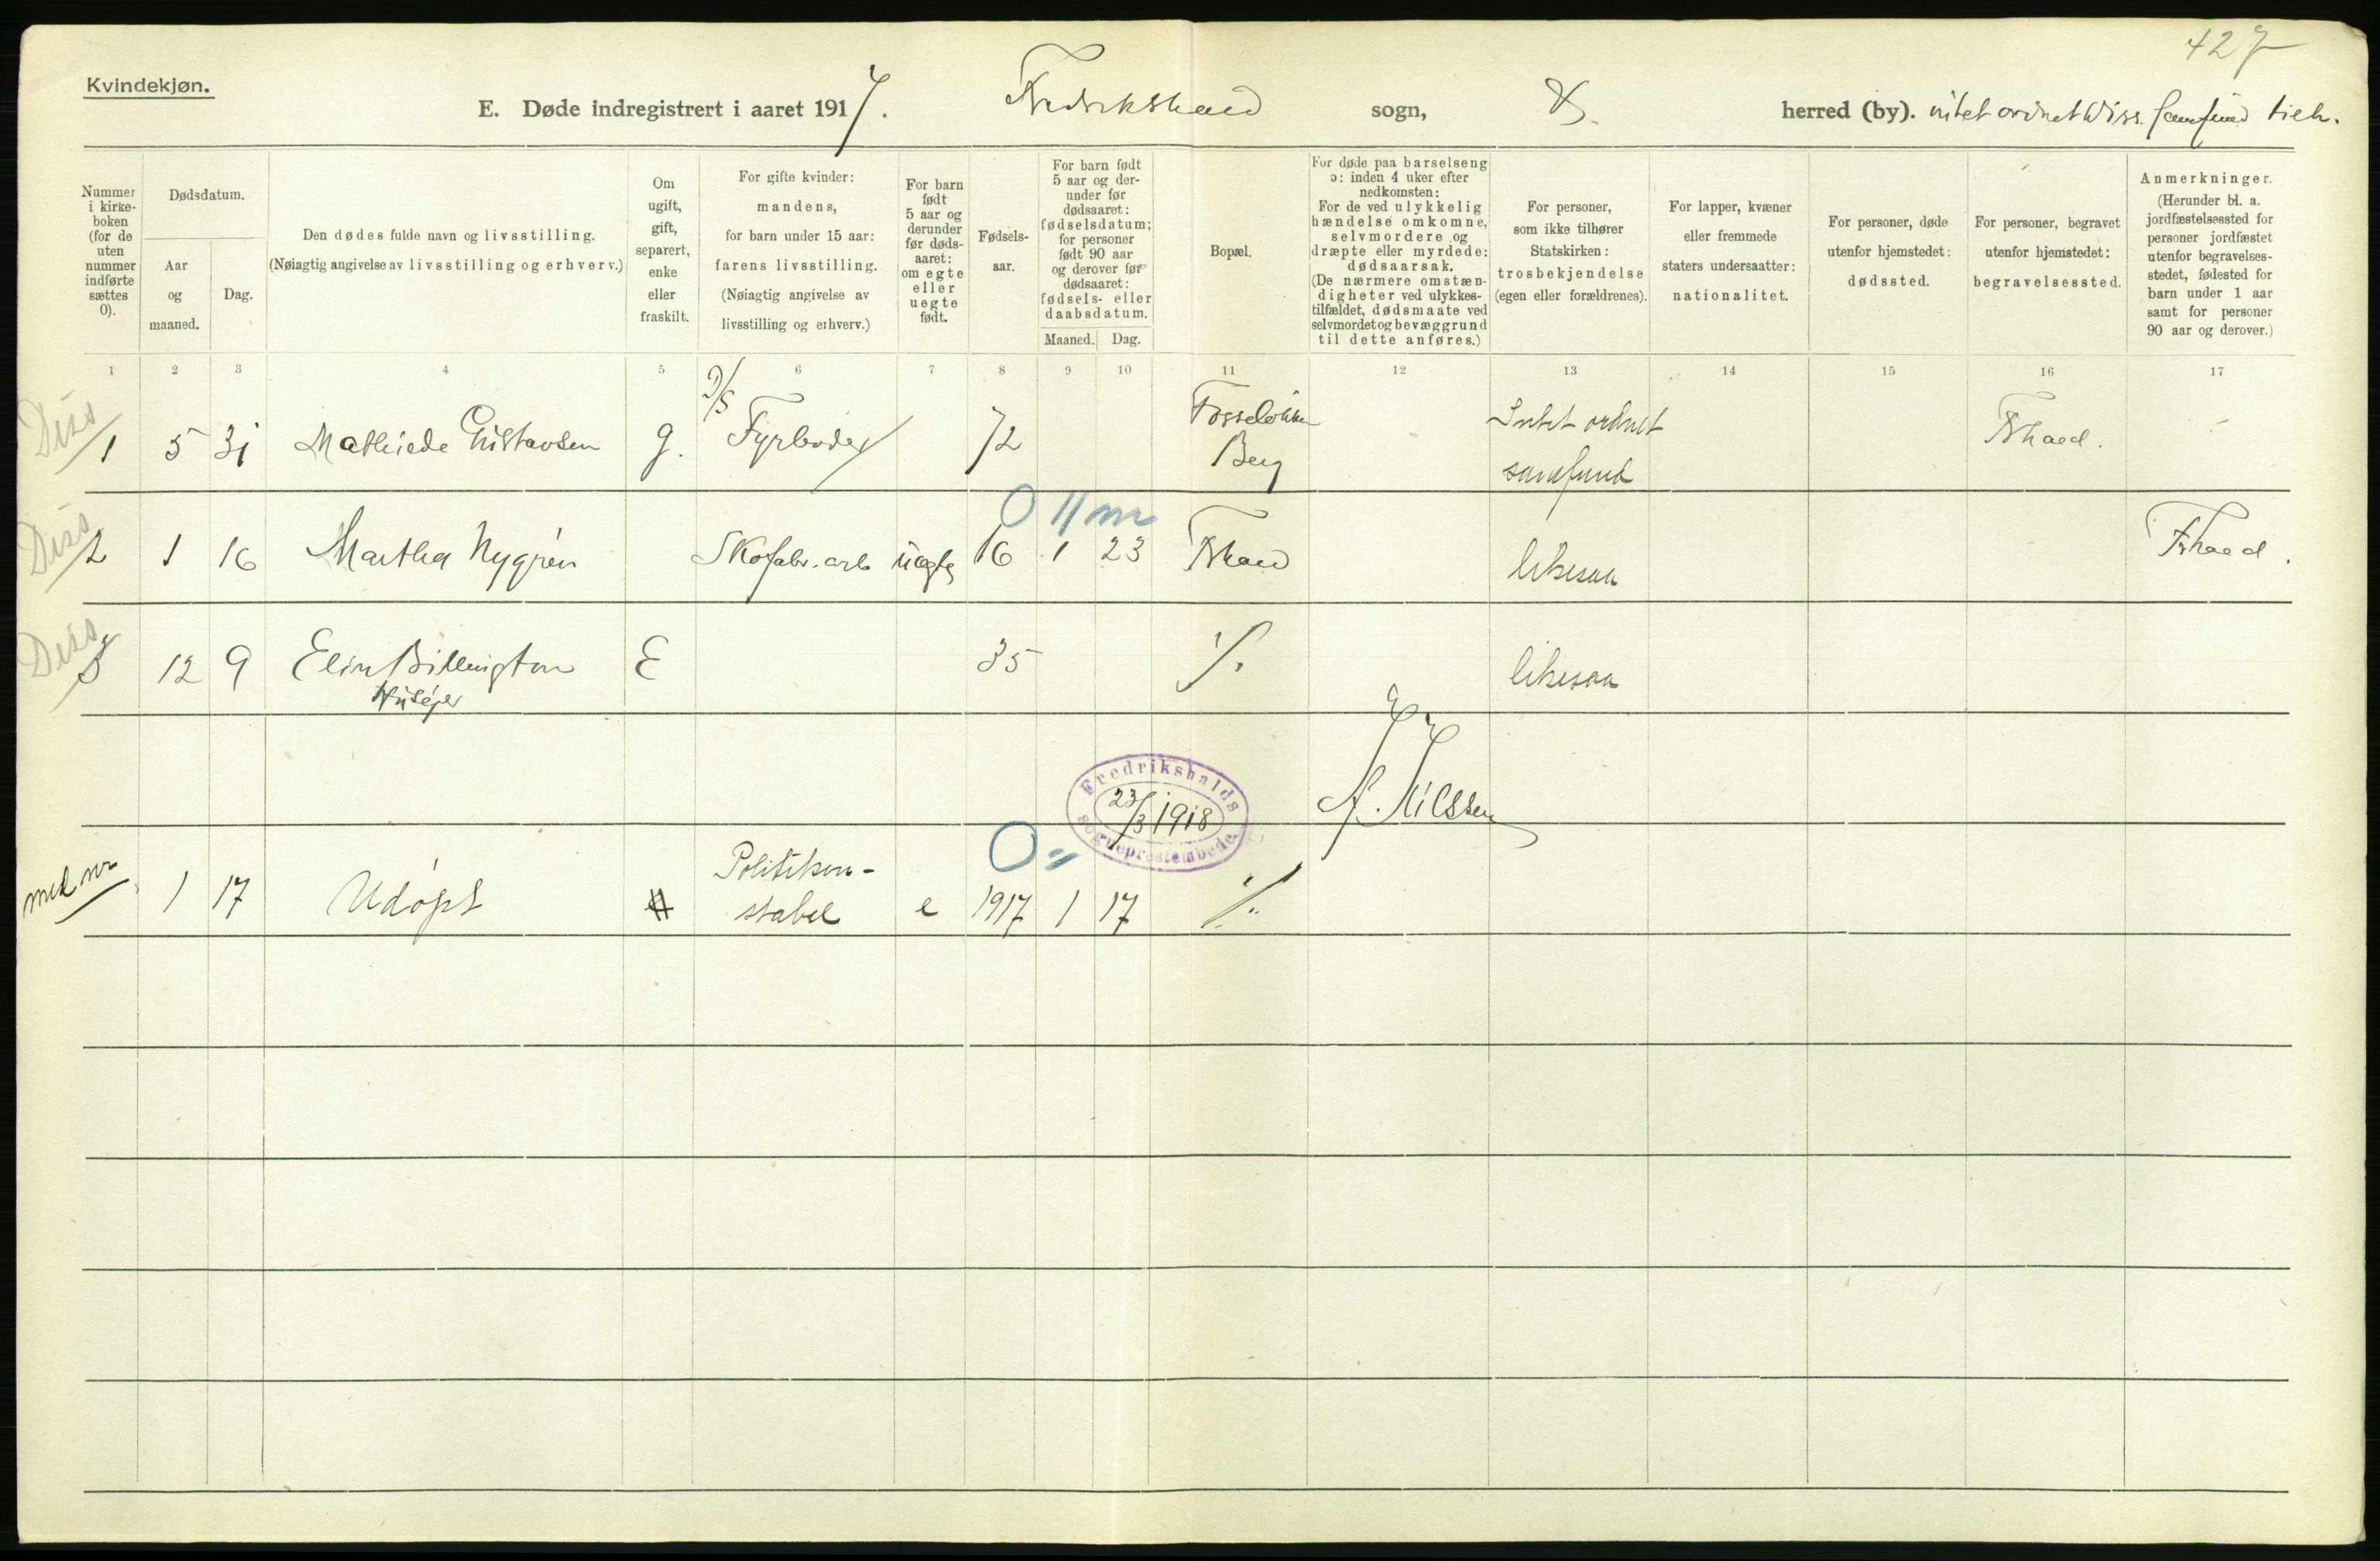 427
Kvindekjøn.
E. Døde indregistrert i aaret 1917. Fredrikshald sogn, herred (by). intet ordnet Diss. samfund tilh.
Nummer i kirke-boken (for de uten nummer indførte sættes 0).
Dødsdatum.
Aar og maaned.
Dag.
Den dødes fulde navn og livsstilling.
(Nøiagtig angivelse av livsstilling og erhverv.)
Om ugift, gift, separert, enke eller fraskilt.
For gifte kvinder: mandens, for barn under 15 aar: farens livsstilling. (Nøiagtig angivelse av livsstilling og erhverv.)
For barn født 5 aar og derunder før døds-aaret: om egte eller uegte født.
Fødsels-aar.
For barn født 5 aar og der-under før dødsaaret: fødselsdatum; for personer født 90 aar og derover før dødsaaret: fødsels- eller daabsdatum.
Maaned. Dag.
Bopæl.
For døde paa barselseng ɔ: inden 4 uker efter nedkomsten: For de ved ulykkelig hændelse omkomne, selvmordere og dræpte eller myrdede: dødsaarsak. (De nærmere omstæn-digheter ved ulykkes-tilfældet, dødsmaate ved selvmordet og bevæggrund til dette anføres.)
For personer, som ikke tilhører Statskirken: trosbekjendelse (egen eller forældrenes).
For lapper, kvæner eller fremmede staters undersaatter: nationalitet.
For personer, døde utenfor hjemstedet: dødssted.
For personer, begravet utenfor hjemstedet: begravelsessted.
Anmerkninger. (Herunder bl. a. jordfæstelsessted for personer jordfæstet utenfor begravelses-stedet, fødested for barn under 1 aar samt for personer 90 aar og derover.)
1 2 3 4 5 6 7 8 9 10 11 12 13 14 15 16 17
Diss 1 5 31 Mathilde Gustavsen g. D/S Fyrbøder 72 Fosseløkken Berg Intet ordnet samfund Fhald.
0 11 m
Diss 2 1 16 Martha Nygren Skofabr. arb uegte 16 1 23 Fhald likesaa Fhald.
Diss 3 12 9 Elin Billington E 35 likesaa
Husejer
Fredrikshalds sogneprestembede
23/3 1918
Nilssen
0
1 17 Udøpt Politikon-
stabel e 1917 1 17